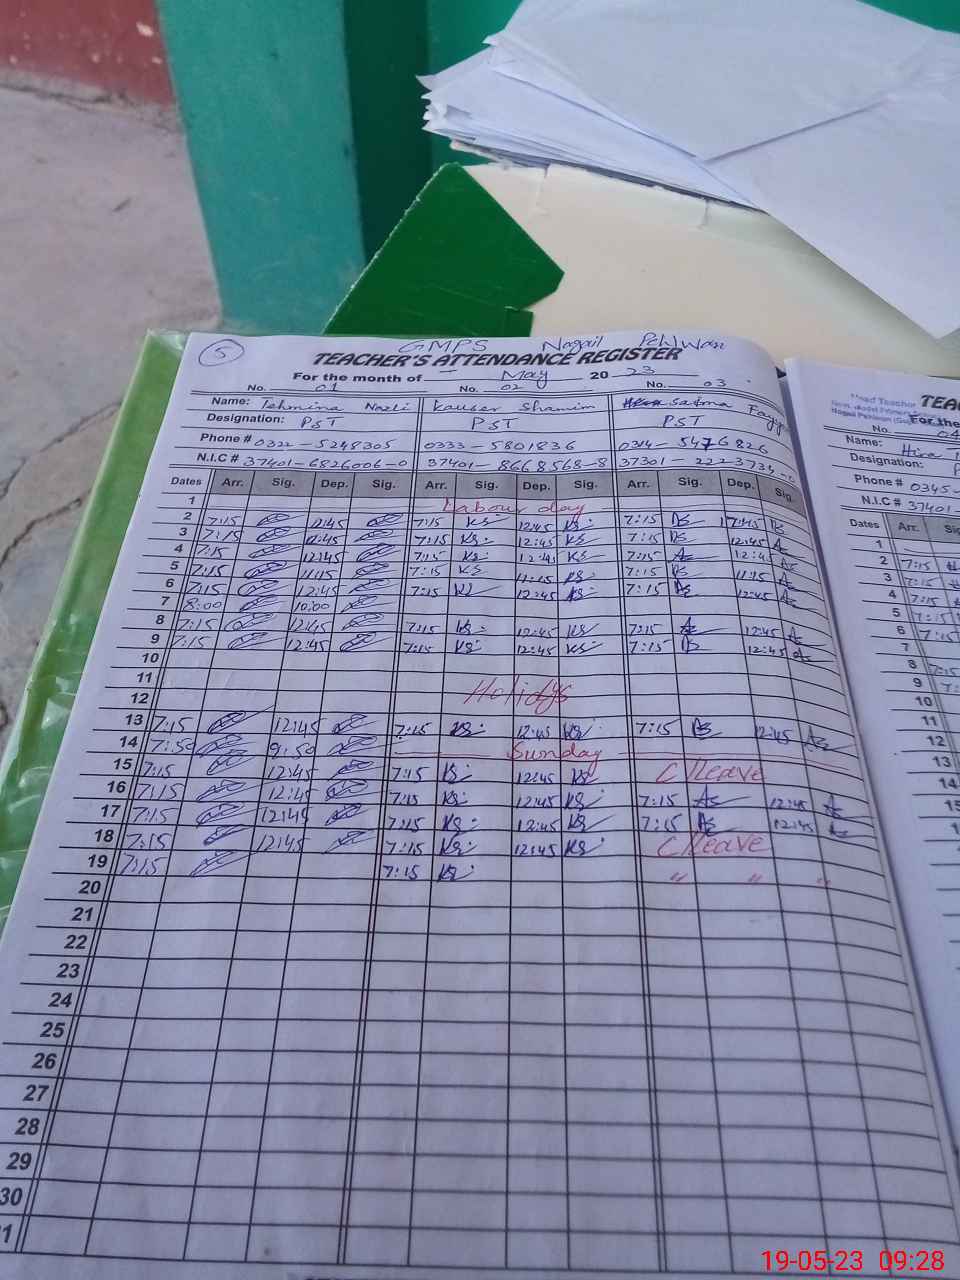 5 GMPS Nagail Pehlwan
TEACHER'S ATTENDANCE REGISTER
For the month of May 2023
No. 01 No. 02 No. 03
Name: Tehmina Nazli Kauser Shamim Saima
Designation: PST PST PST
Phone # 0322-5248305 0333-5801836 0314-5476826
N.I.C # 37401-6826006-0 37401-8668568-8 37301-2223734-
Dates Arr. Sig. Dep. Sig. Arr. Sig. Dep. Sig. Arr. Sig. Dep. Sig.
1 Labour day
2 7:15 12:45 7:15 KS 12:45 KS 7:15 12:45
3 7:15 12:45 7:15 KS 12:45 KS 7:15 12:45
4 7:15 12:45 7:15 KS 12:45 KS 7:15 12:4
5 7:15 11:15 7:15 KS 11:15 KS 7:15 11:15
6 7:15 12:45 7:15 12:45 KS 7:15 12:45
7 8:00 10:00
8 7:15 12:45 7:15 KS 12:45 KS 7:15 12:45
9 7:15 12:45 7:15 KS 12:45 KS 7:15 12:45
10
11
12 Holidys
13 7:15 12:45 7:15 KS 12:45 KS 7:15 12:45
14 7:50 9:50 Sunday
15 7:15 12:45 7:15 KS 12:45 KS C/leave
16 7:15 12:45 7:15 KS 12:45 KS 7:15 12:45
17 7:15 12:45 7:15 KS 12:45 KS 7:15 12:45
18 7:15 12:45 7:15 KS 12:45 KS C/leave
19 7:15 7:15 KS " " "
20
21
22
23
24
25
26
27
28
29
30
1
Head Teacher
TEA
For the
No. 04
Name: Hira
Designation:
Phone # 0345-
N.I.C # 37401-
Dates Arr. Sig
1
2 7:15
3 7:15
4 7:15
5 7:15
6 7:15
7
8 7:15
9
10
11
12
13
14
15
16
17
19-05-23 09:28